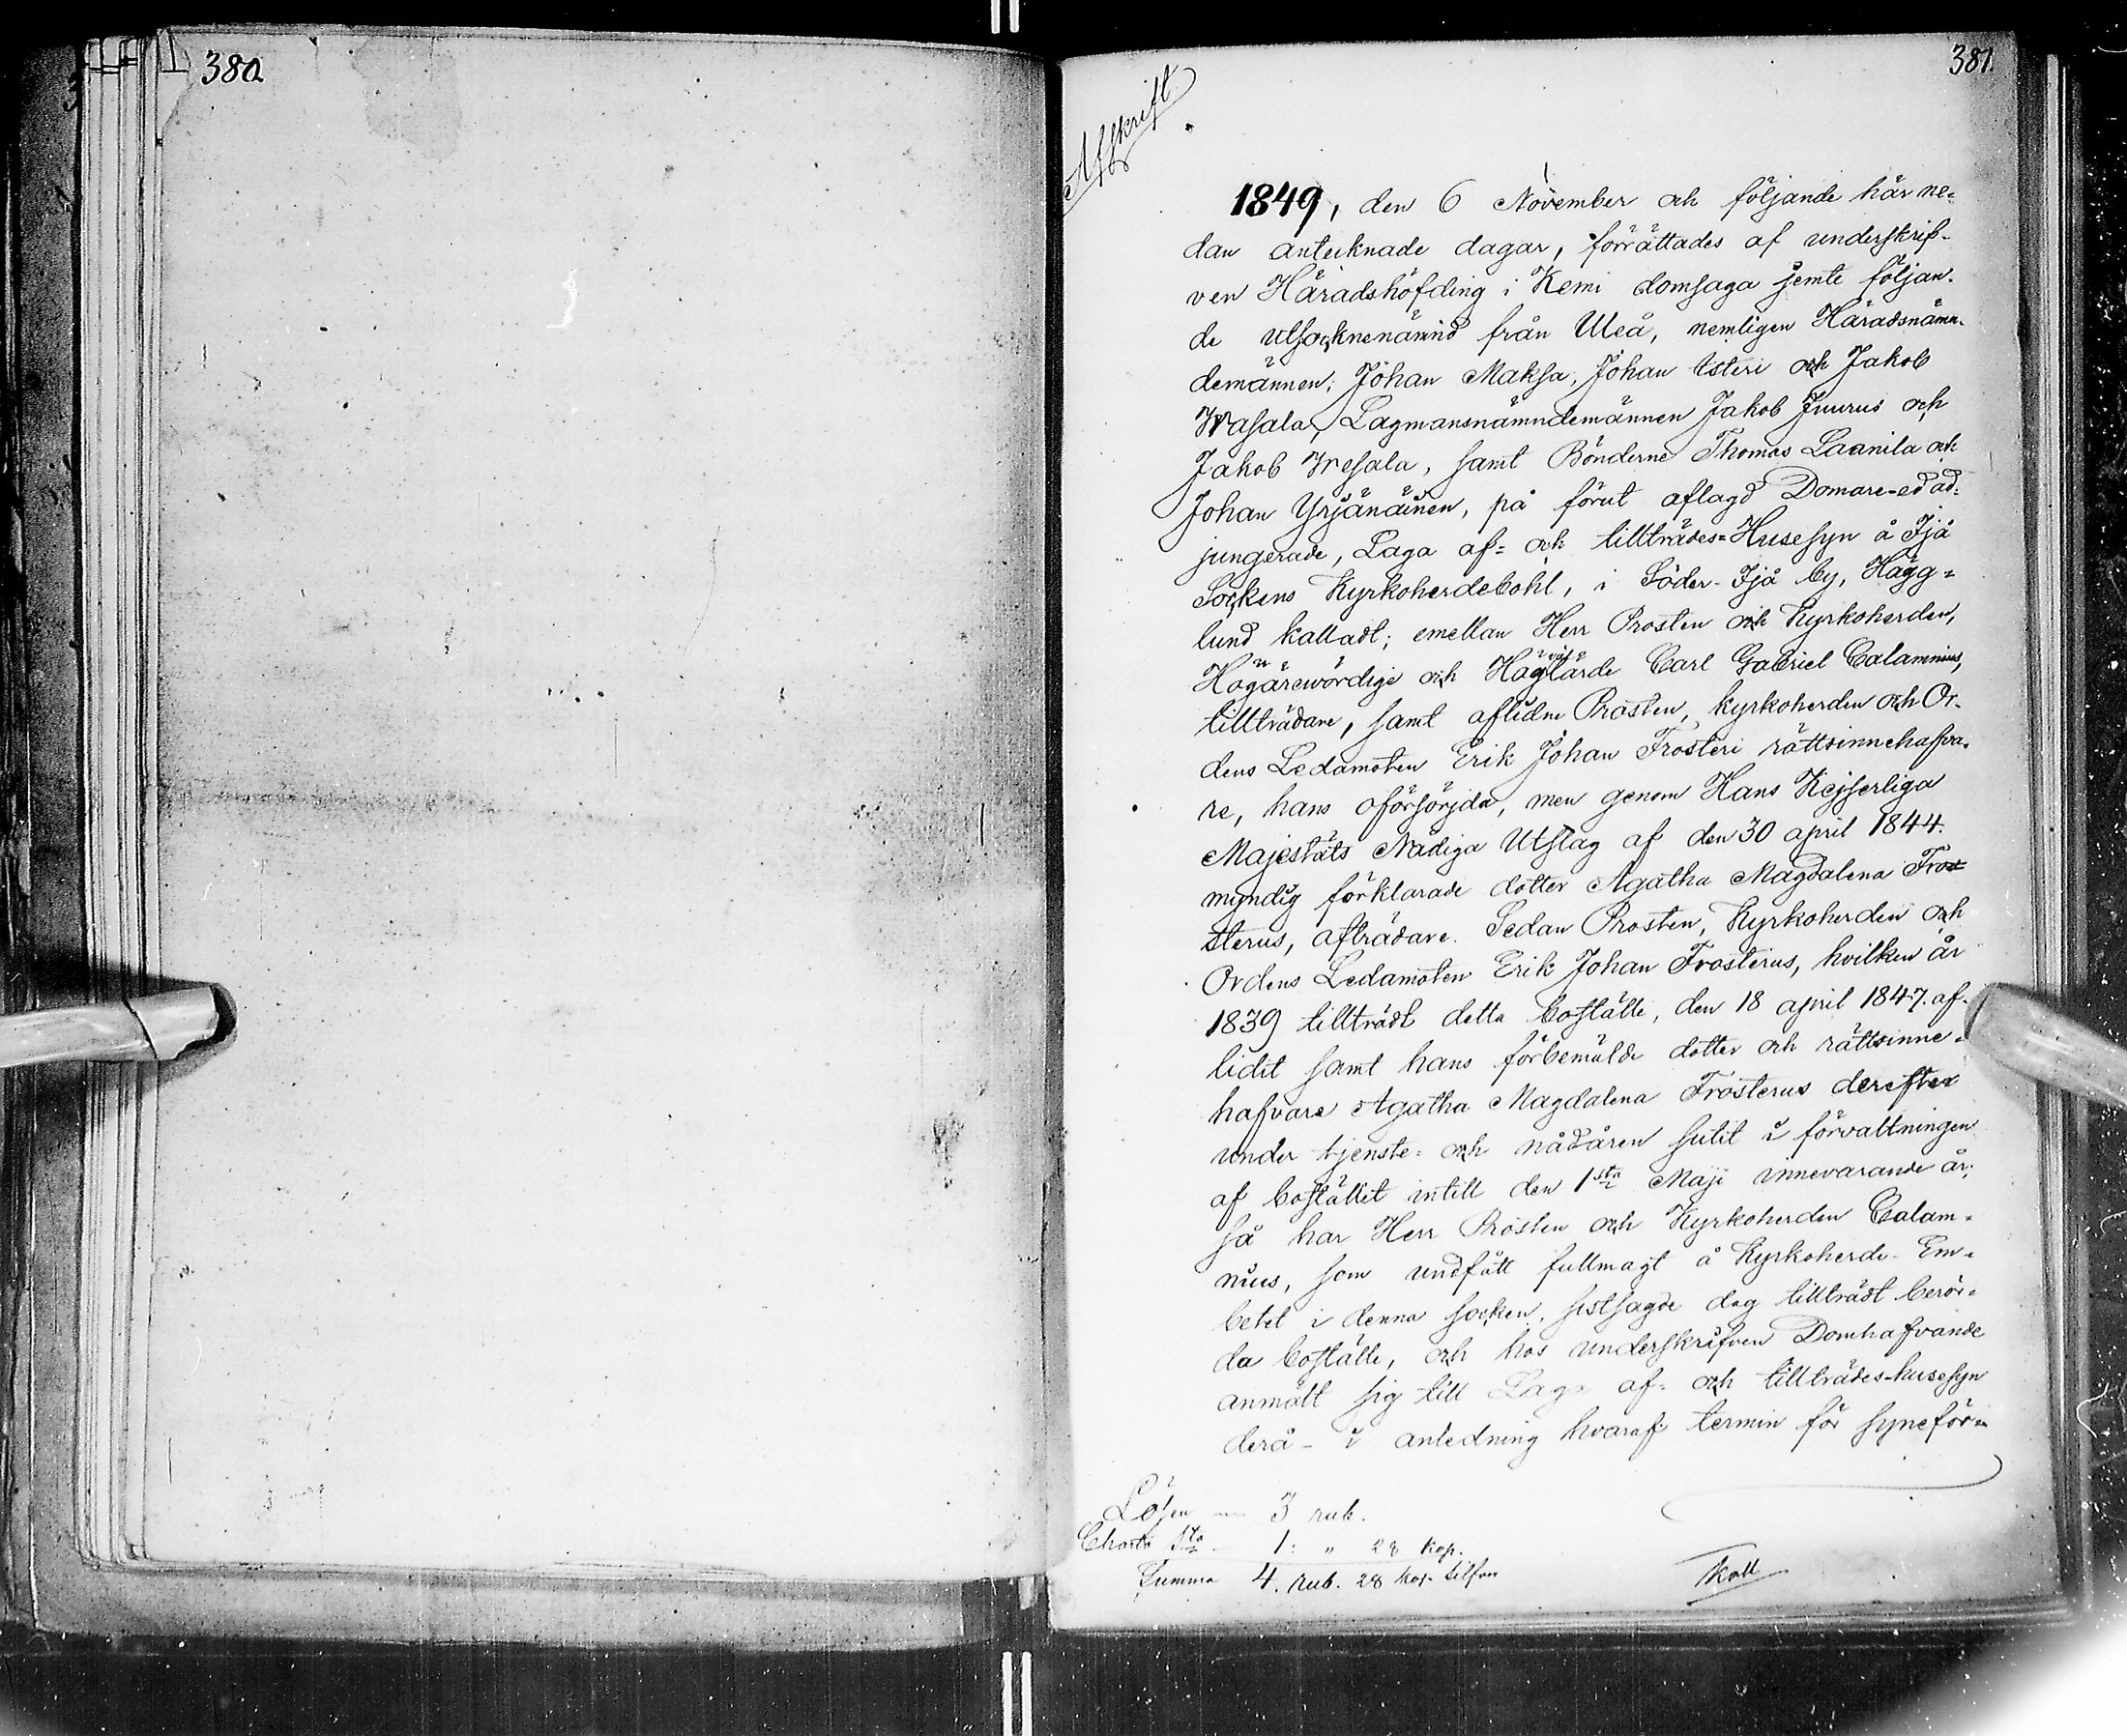 380.
381.
Afskrift.
1849, den 6 November och följande här ne=
dan antecknade dagar, förrättades af underskrif-
ven Häradshöfding i Kemi domsaga jemte följan-
de utsocknenämnd från Uleå, nemligen Häradsnämn-
demännen; Johan Maksa, Johan Isteri och Jakob
Wasala, Lagmansnämndemännen Jakob Juurus och
Jakob Wesala, samt Bönderne Thomas Laanila och
Johan Yrjänäinen, på förut aflagd Domare-ed ad=
jungerade, Laga af= och tillträdes=Husesyn å Ijå
Sockens Kyrkoherdebohl, i Söder-Ijå by, Hägg=
lund kalladt; emellan Herr Prosten och Kyrkoherden,
Högärewördige och Höglärde Carl Gabriel Calamnius,
tillträdare, samt aflidne Prosten, kyrkoherden och Or-
dens Ledamoten Erik Johan Frosteri rättsinnehafva-
re, hans oförsörjda, men genom Hans Kejserliga
Majestäts Nådiga Utslag af den 30 april 1844.
myndig förklarade dotter Agatha Magdalena Fros
sterus, afträdare. Sedan Prosten, Kyrkoherden och
Ordens Ledamoten Erik Johan Frosterus, hvilken år
1839 tillträdt detta boställe, den 18 april 1847. af-
lidit samt hans förbemälde dotter och rättsinne=
hafvare Agatha Magdalena Frosterus derefter
under tjenste= och nådåren sutit i förvaltningen
af bostället intill den 1sta Maji innevarande år;
så har Herr Prosten och Kyrkoherden Calam=
nius, som undfått fullmagt å Kyrkoherde-Em=
betet i denna socken, sistsagde dag tillträdt berör=
da boställe, och hos underskrifven Domhafvande
anmält sig till Laga af= och tillträdes-husesyn
derå - i anledning hvaraf termin för syneför=
Lösen — 3 rub.
Charta Sta - 1: " 28 kop.
Summa 4. rub. 28 kop silfver
Koll